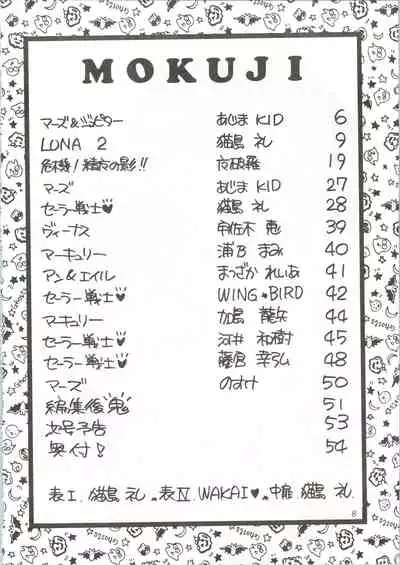 MOKUJI
マーズ&ジュピター あじま KID 6
LUNA 2 猫島 礼 9
危機!精夜の影!! 夜破羅 19
マーズ あじま KID 27
セーラー戦士♥ 猫島 礼 28
ヴィーナス 宇佐木 恵 39
マーキュリー 浦B まみ 40
アン&エイル まつざか れいあ 41
セーラー戦士♥ WING★BIRD 42
マーキュリー 加島 龍矢 44
セーラー戦士♥ 河井 和樹 45
セーラー戦士♥ 藤倉 幸弘 48
マーズ のすけ 50
編集後鬼 51
次号予告 53
奥付! 54
表I. 猫島 礼 表IV. WAKAI♥. 中扉 猫島 礼.
8